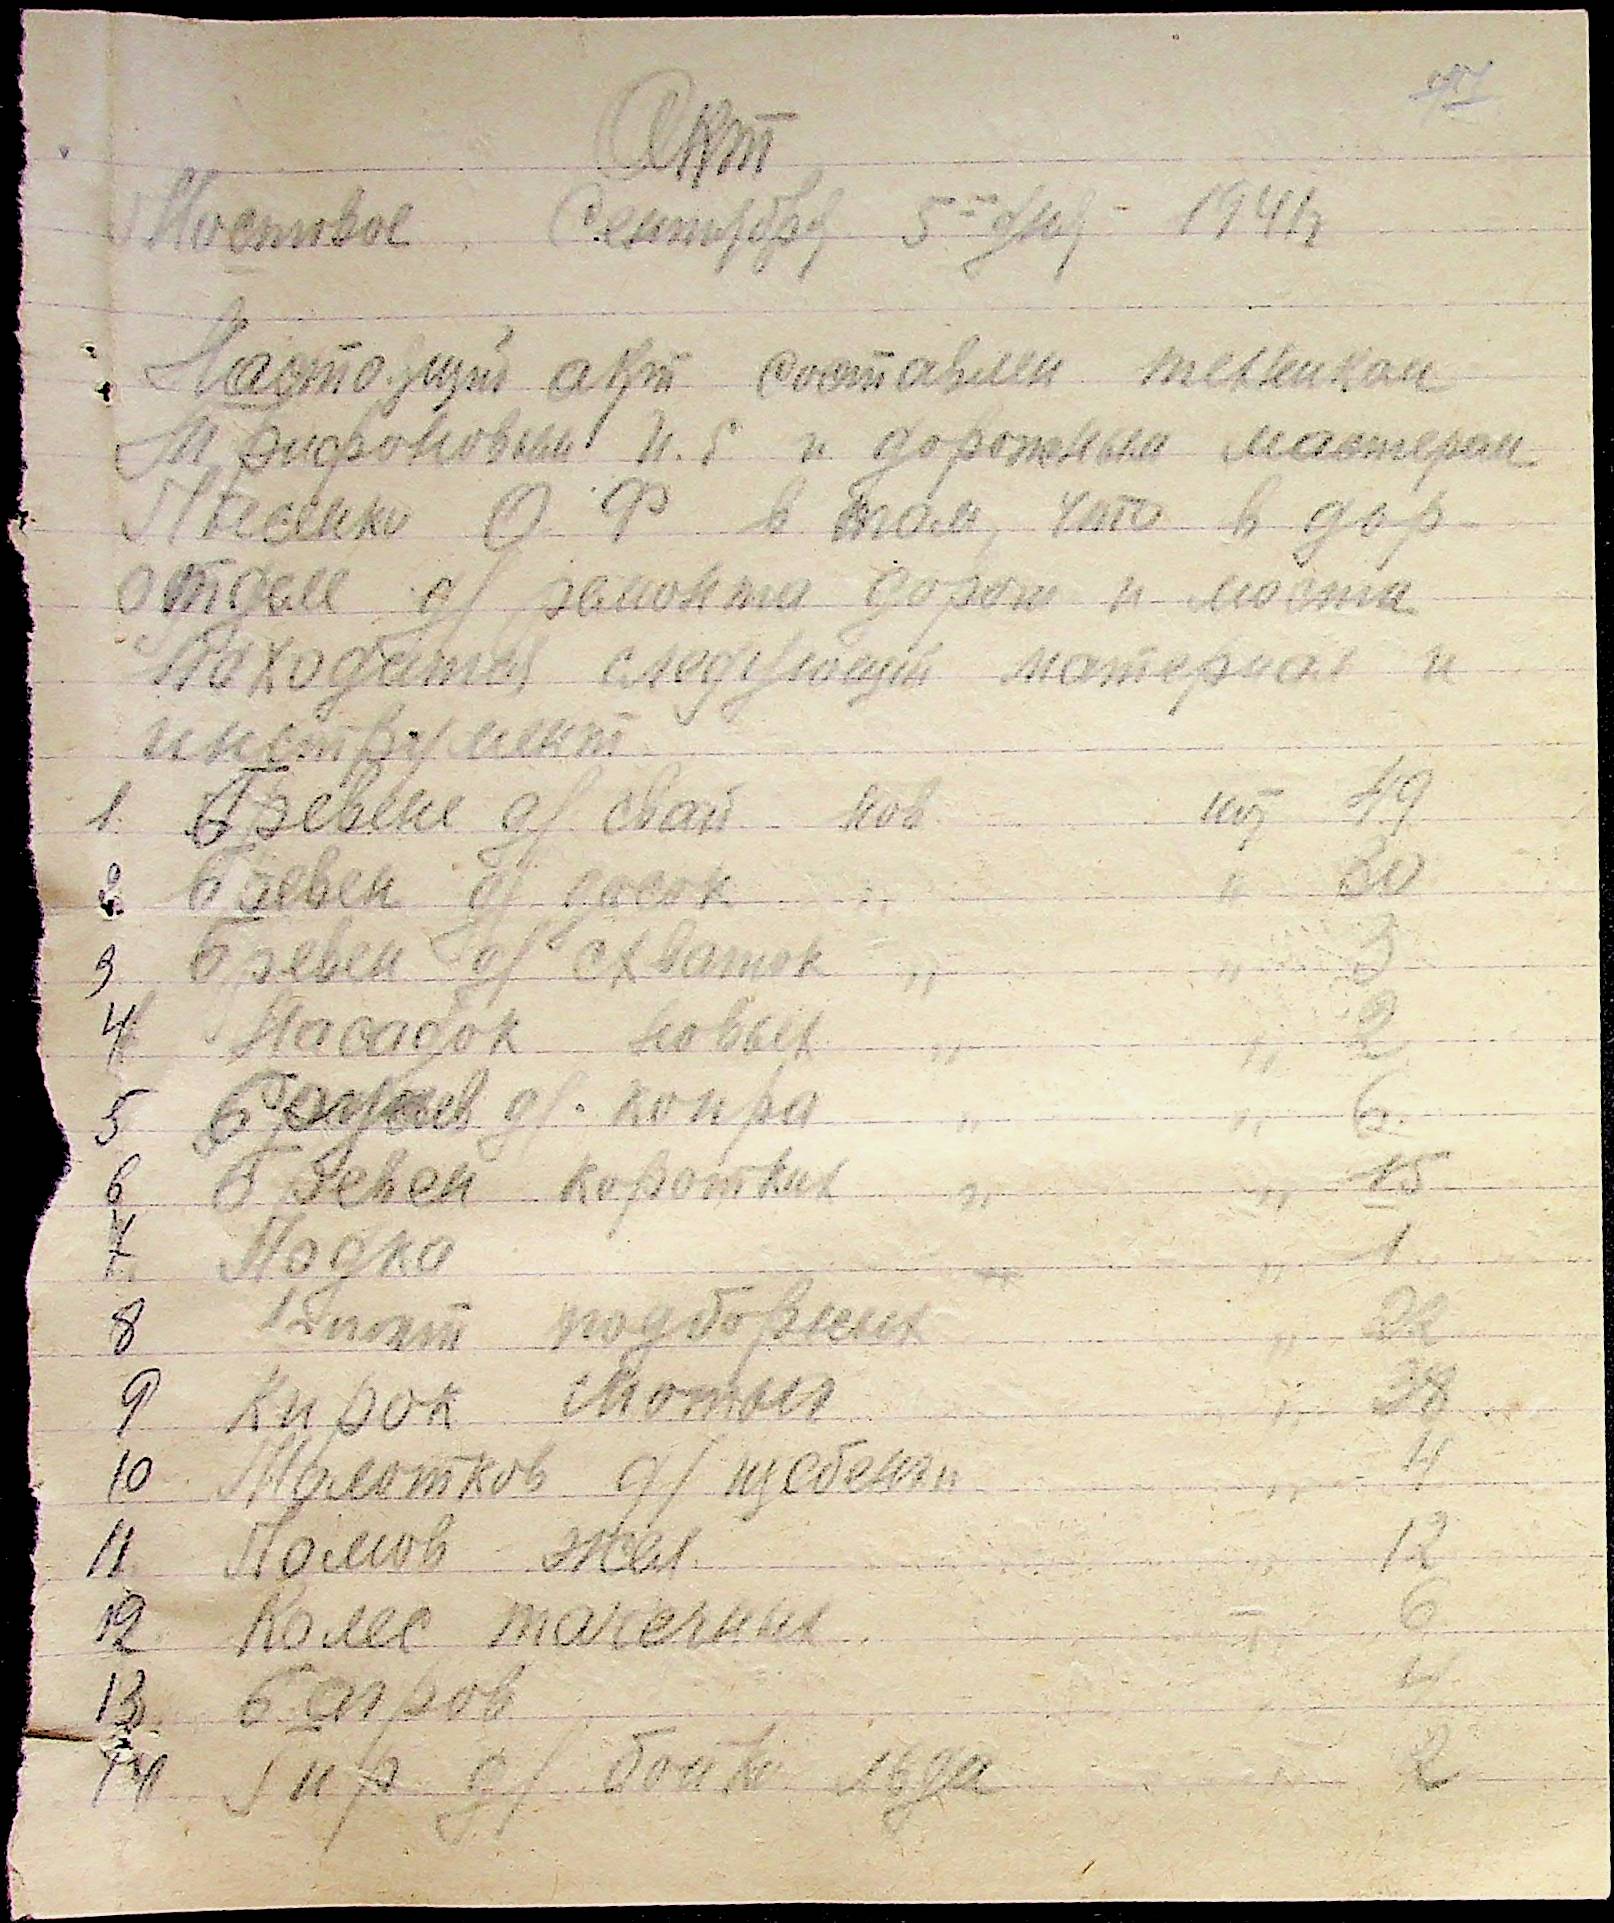 Акт
Мостовое. Сентября 5го дня - 1941г
Настоящий акт составлен техникам
Трифоновым И.Г и дорожным мастерам
Песенко О Ф в том, что в дор-
отделе д/ ремонта дорог и мости
находится следующий материал и
инструмент
1. Бревене д/ свай нов шт 49
2. Бревен д/ досок " " 30
3 Бревен д/ схваток " " 3
4 Насадок новых " " 2
5 д/. копра " " 6.
6 Бревен коротких " " 15
7. Лодка " 1.
8 подборных " 22
9 Кирок Мотыг " 38
10 Молотков д/ щебенки " 4
11. Ломов жел. " 12
12. Колес тачечных. " 6
13. Багров 4
14 д/ бойки льда 2